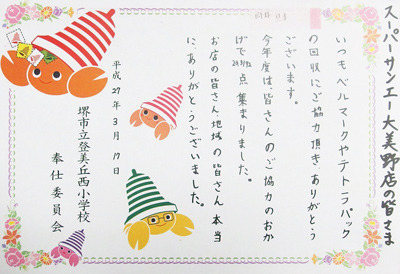 スーパーサンエー大美野店の皆さま
いつもベルマークやテトラパック
の回収にご協力頂きありがとう
ございます。
今年度は、皆さんのご協力のおか
げで 点集まりました。
お店の皆さん、地域の皆さん本当
にありがとうございました。
平成27年3月17日
堺市立登美丘西小学校
奉仕委員会